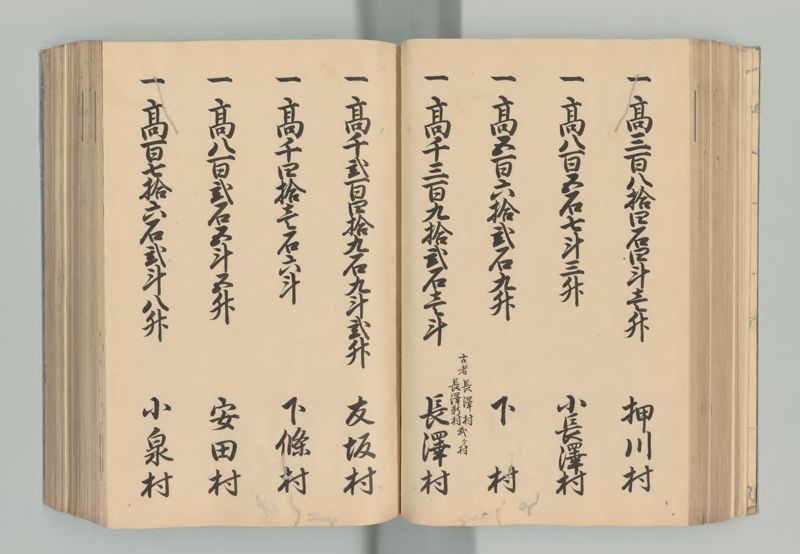 一高三百八拾四石四斗壱升 押川村
一高八百五石七斗三升 小長澤村
一高五百六拾弐石九升 下村
古者 長澤村 長澤新村 弐ヶ村
一高千三百九拾弐石壱斗 長澤村
一高千弐百四拾九石九斗弐升 友坂村
一高千四拾壱石六斗 下條村
一高八百弐石五斗五升 安田村
一高百七拾六石弐斗八升 小泉村